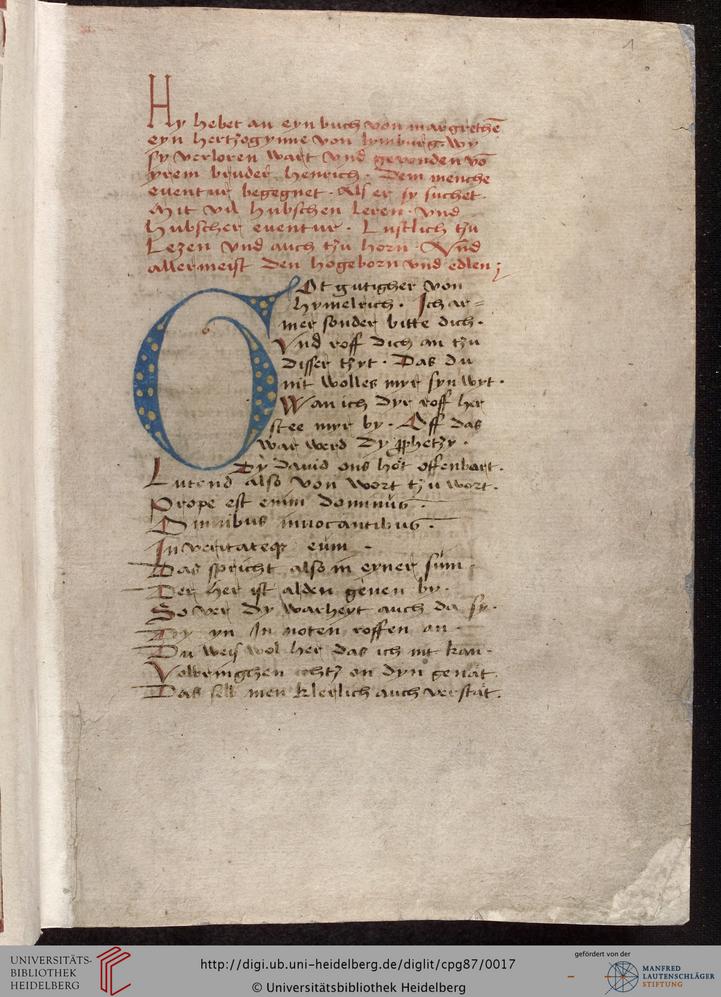 1
Hy hebet an eyn buch von margrethē
eyn hertzogynne von lymburg. wy
sy verloren wart vnd gevonden vō
yrem bruder henrich. Dem menche
eventur begegnet. Als er sy suchet.
Mit vil hubschen leren. vnd
Hubscher eventur. Lustlich tzu
Lezen vnd auch tzu horn. Vnd
allermeist den hogeborn vnd edlen
Ot gutigher von
hymelrich. Ich ar=
mer sonder bitte dich.
Vnd roff dich an tzu
disser tzyt. Das du
nit wolles myr syn wyt.
Wan ich dyr roff her
stee myr by. Off das
war werd dy ꝓphetzy.
Dy david ons hot offenbart.
Lutend also von wort tzu wort.
Prope est enim dominus.
Omnibus invocantibus.
In veritate eum.
Das spricht also in eyner sum.
Der her ist alden genen by.
So ver dy warheyt auch da sy.
Dy yn In noten roffen an.
Du weis wol her das ich nit kan.
Volbringhen ichtz on dyn genat.
Das sell men klerlich auch verstat.
UNIVERSITÄTS-
BIBLIOTHEK
HEIDELBERG
http://digi.ub.uni-heidelberg.de/diglit/cpg87/0017
© Universitätsbibliothek Heidelberg
gefördert von der
MANFRED
LAUTENSCHLÄGER
STIFTUNG